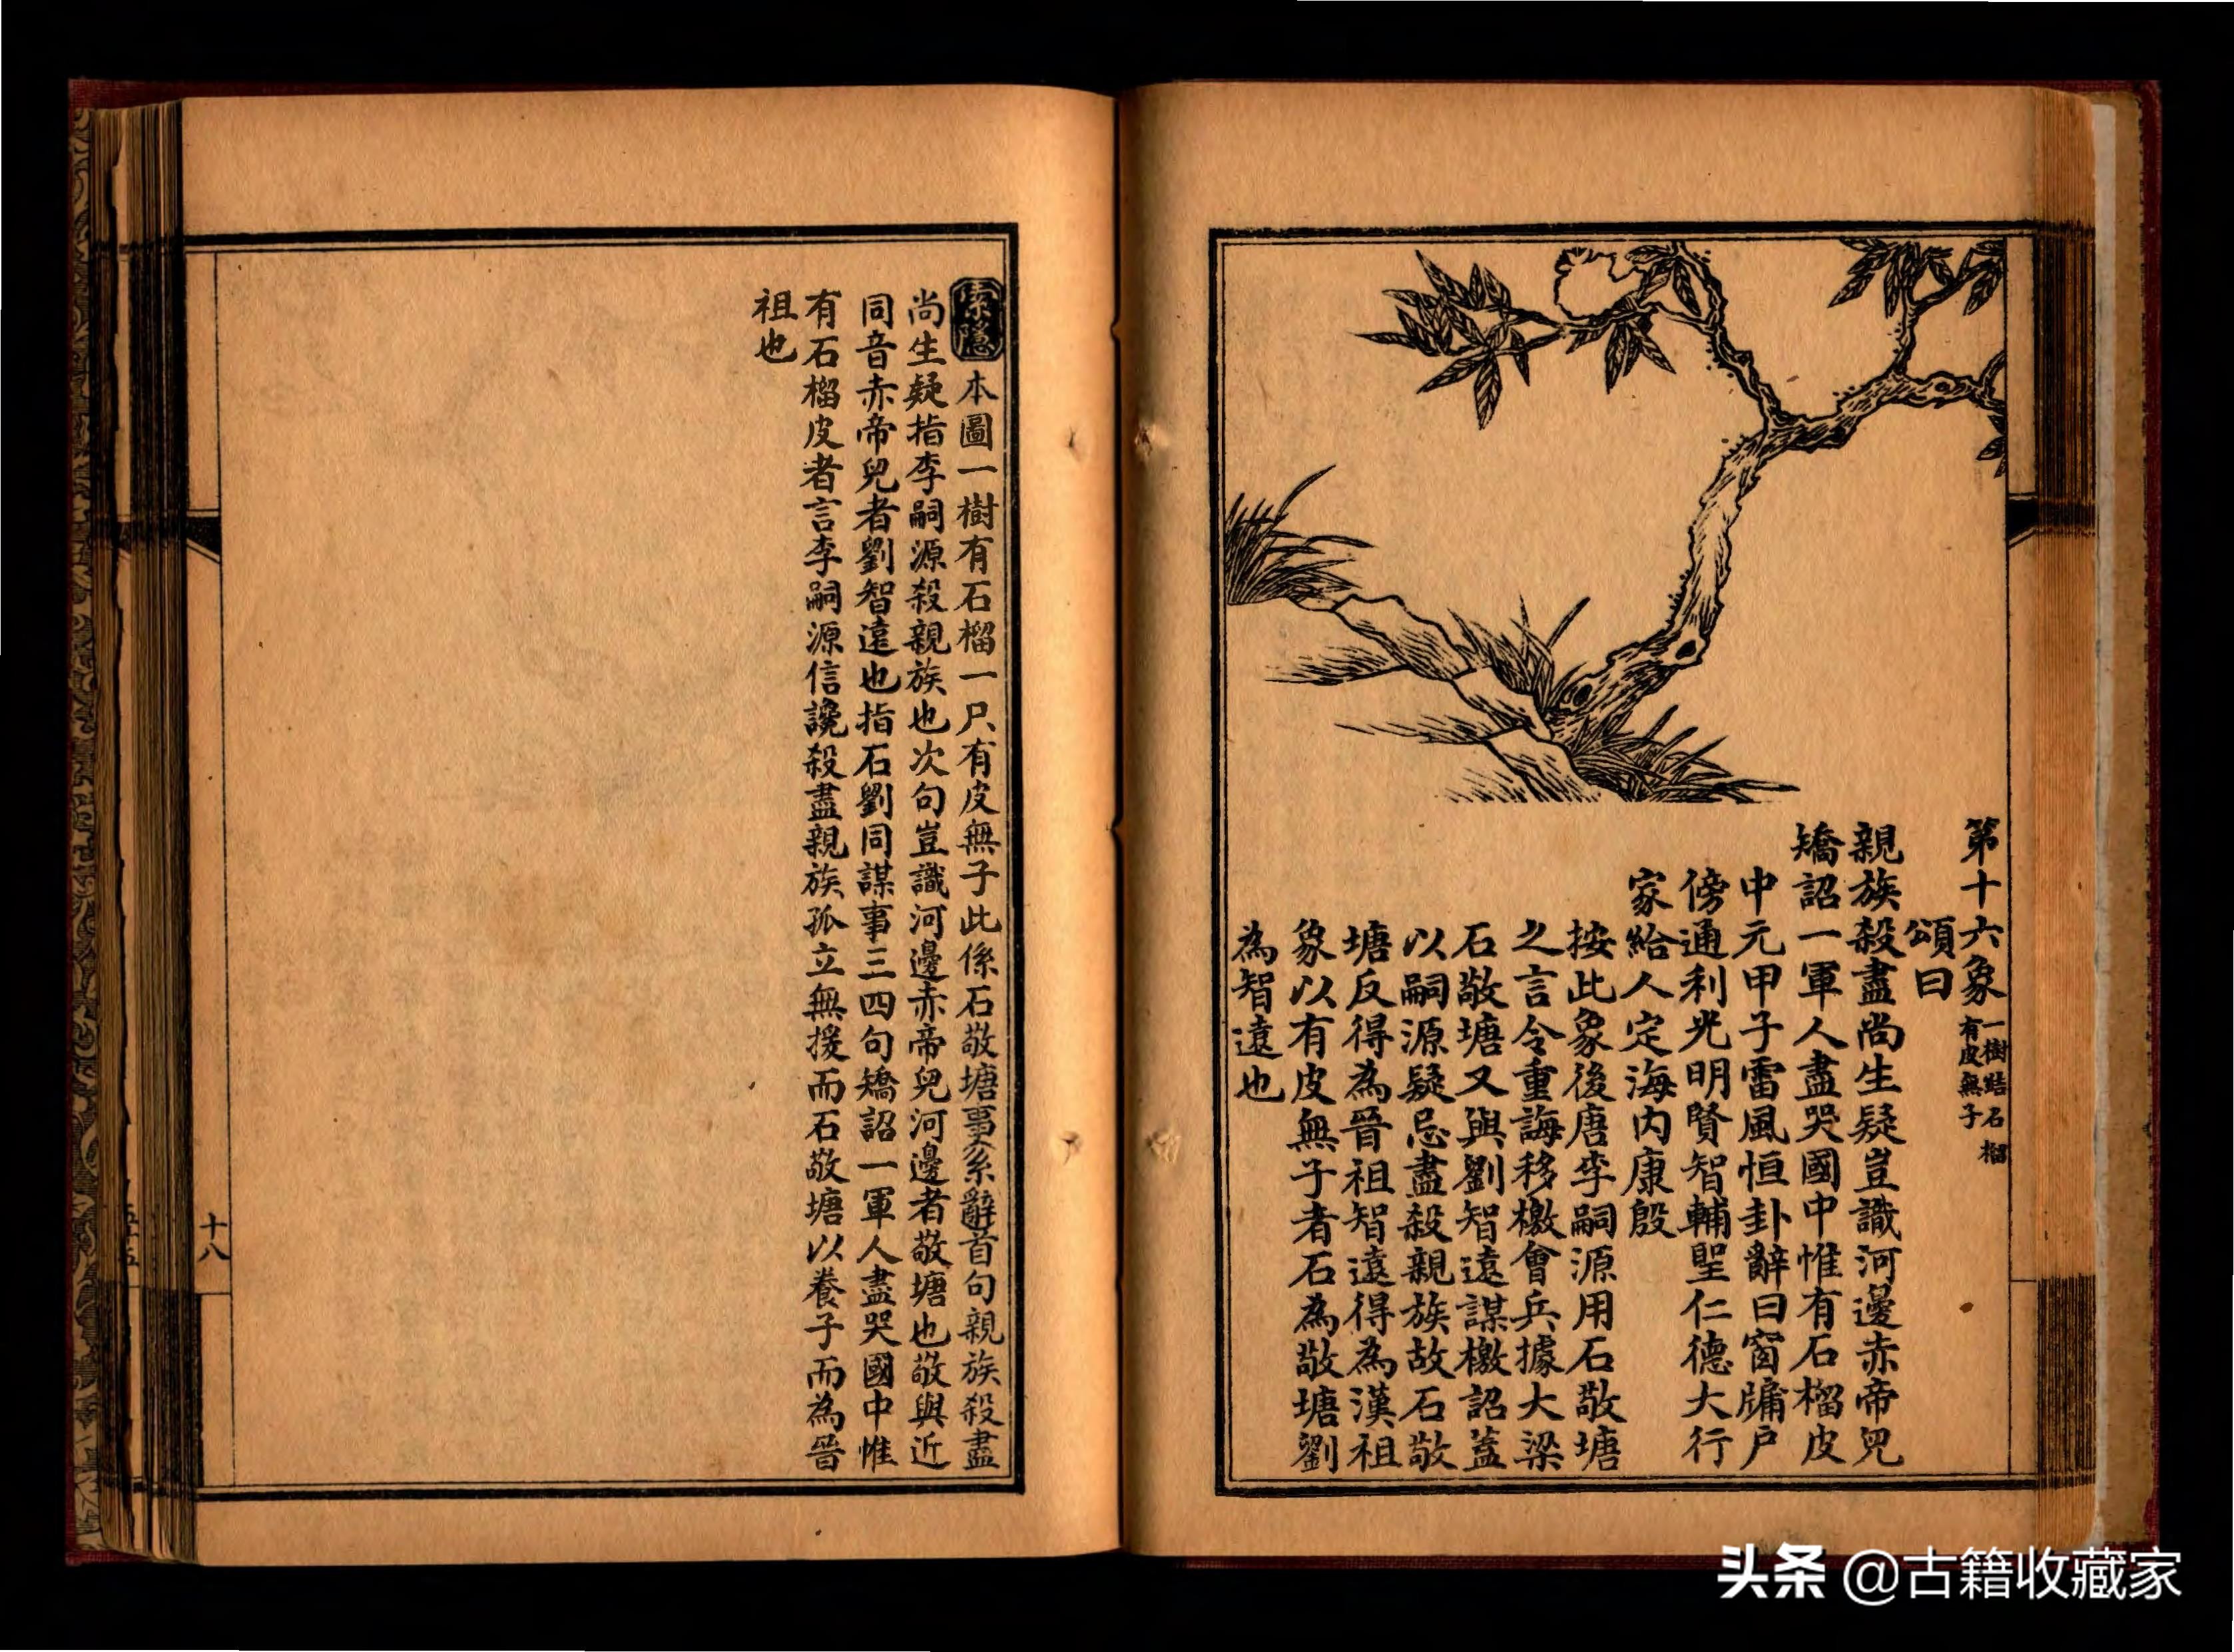 第十六象
一樹結石榴
有皮無子
頌曰
親族殺盡尚生疑豈識河邊赤帝兒
矯詔一軍人盡哭國中惟有石榴皮
中元甲子雷風恒卦辭曰窗牖戶
傍通利光明賢智輔聖仁德大行
家給人定海内康殷
按此象後唐李嗣源用石敬塘
之言令重誨移檄會兵據大梁
石敬塘又與劉智遠謀檄詔蓋
以嗣源疑忌盡殺親族故石敬
塘反得為晉祖智遠得為漢祖
象以有皮無子者石為敬塘劉
為智遠也
索隱
本圖一樹有石榴一尺有皮無子此係石敬塘事系辭首句親族殺盡
尚生疑指李嗣源殺親族也次句豈識河邊赤帝兒河邊者敬塘也敬與近
同音赤帝兒者劉智遠也指石劉同謀事三四句矯詔一軍人盡哭國中惟
有石榴皮者言李嗣源信讒殺盡親族孤立無援而石敬塘以養子而為晉
祖也
十八
头条 @古籍收藏家